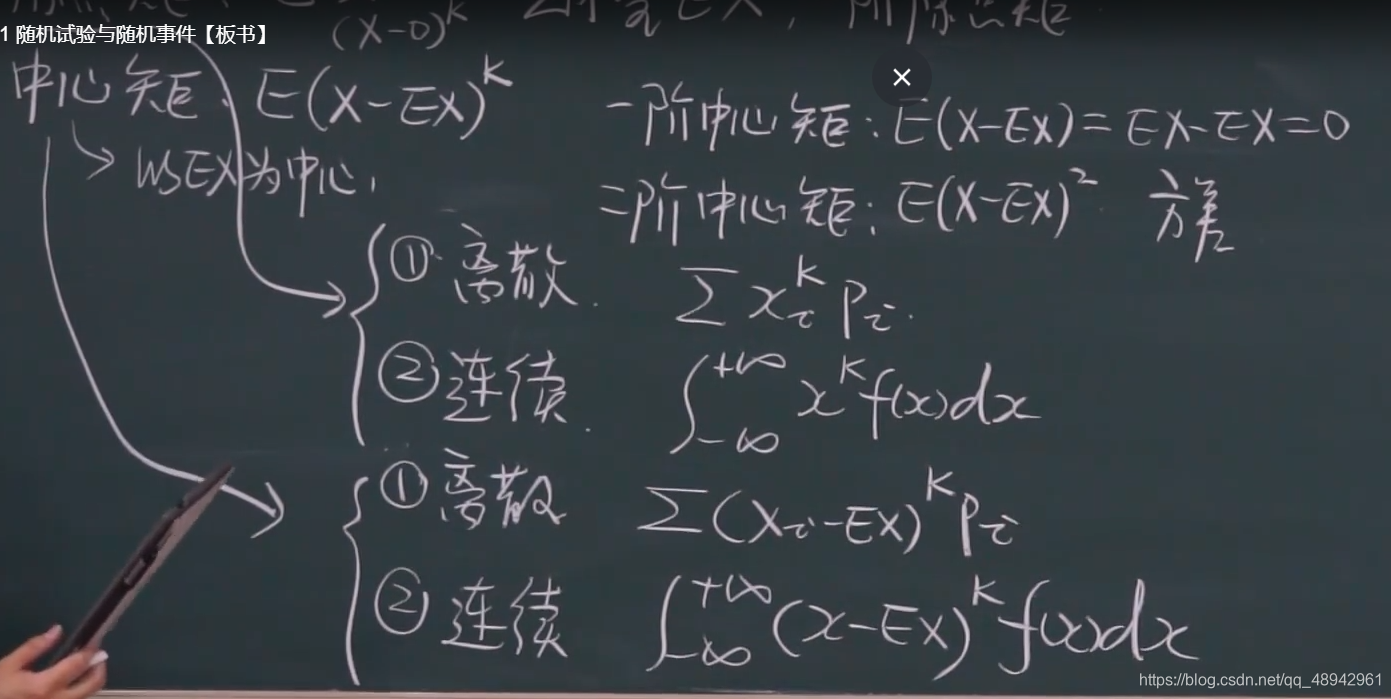 1 随机试验与随机事件【板书】
(X-0)^k
中心矩: E(X-EX)^k
一阶中心矩: E(X-EX)=EX-EX=0
以EX为中心,
二阶中心矩: E(X-EX)² 方差
① 离散. ∑ x_i^k p_i.
② 连续. ∫_{-∞}^{+∞} x^k f(x)dx
① 离散 ∑(x_i-EX)^k p_i
② 连续 ∫_{-∞}^{+∞} (x-EX)^k f(x)dx
https://blog.csdn.net/qq_48942961